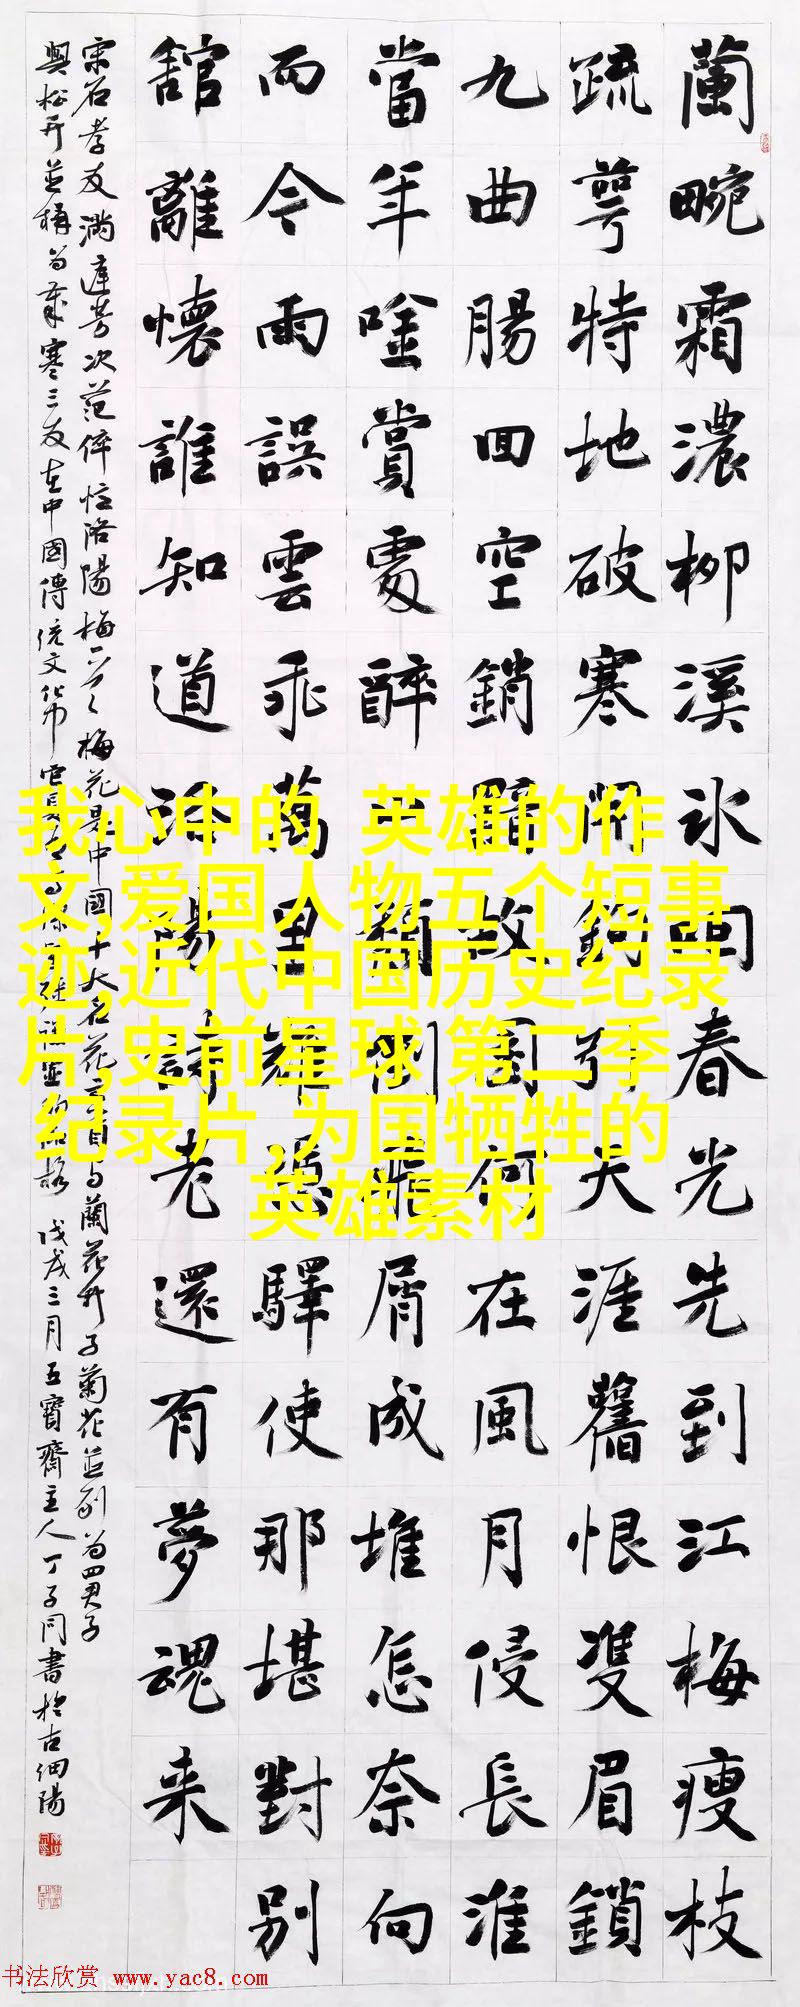 蘭畹霜濃柳溪氷咽春光先到江梅瘦枝
疏萼特地破寒開鉤引天涯舊恨雙眉鎖
九曲腸回空銷黯故園何在風月侵長淮
當年唫賞處醉山頹倒飛屑成堆怎奈向
而今雨誤雲乖萬里難憑驛使那堪對别
舘離懷誰知道洛陽詩老還有夢魂来
宋石孝友滿庭芳次范倅憶洛陽梅 梅花是中國十大名花之首与蘭花竹子菊花並列為四君子
與松竹並稱為歲寒三友在中國傳統文化中 戊戌三月五寶齋主人丁子同書於古細陽
我心中的 英雄的作
文,爱国人物五个短事
迹,近代中国历史纪录
片,史前星球 第二季
纪录片,为国牺牲的
英雄素材
书法欣赏 www.yac8.com